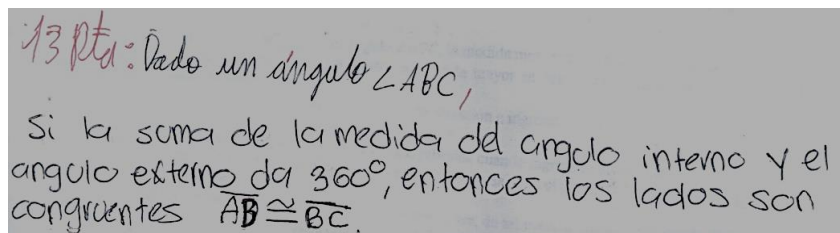 13 Pta: Dado un ángulo ∠ABC,
Si la suma de la medida del angulo interno y el
angulo externo da 360°, entonces los lados son
congruentes AB ≅ BC.